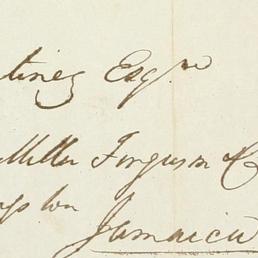 tinez Esqre
Miller Ferguson & C
ngston Jamaica